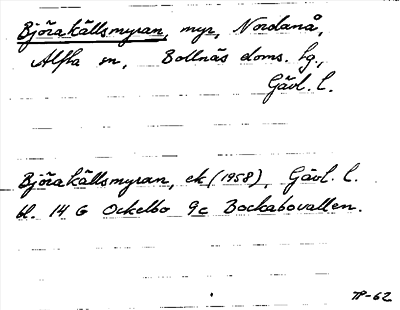 Björakällsmyran, myr, Nordanå,
Alfta sn, Bollnäs doms. hg.,
Gävl. l.
Björakällsmyran, ek (1958), Gävl. l.
bl. 14 G Ockelbo 9c Bockabovallen.
TP-62